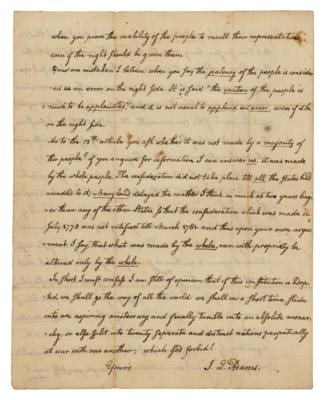 when you prove the inability of the people to recall their representatives
even if the right should be given them
You are mistaken I believe when you say the jealousy of the people is consider
ed as an error on the right side. It is said "the caution of the people is
much to be applauded" and it is not usual to applaud an error, even if it be
on the right side.
As to the 13th article you ask whether it was not made by a majority of
the people? if you enquire for information I can answer no. it was made
by the whole people. The confederation did not take place till all the States had
acceded to it; Maryland delayed the matter I think as much as two years long
er than any of the other States so that the confederation which was made in
July 1778 was not ratified till March 1781 and thus upon your own argu
ment I say that what was made by the whole, can with propriety be
altered only by the whole.
In short I must confess I am still of opinion that if this constitution is adop
ted, we shall go the way of all the world: we shall in a short time slide
into an aspiring aristocracy and finally tumble into an absolute monar
chy, or else split into twenty seperate and distinct nations perpetually
at war with one another; which god forbid!
Yours J. Q. Adams.